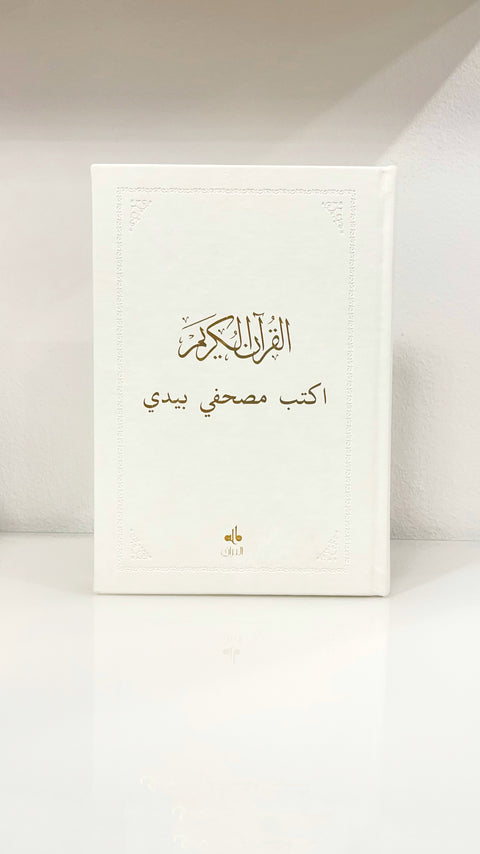 القرآن الكريم
اكتب مصحفي بيدي